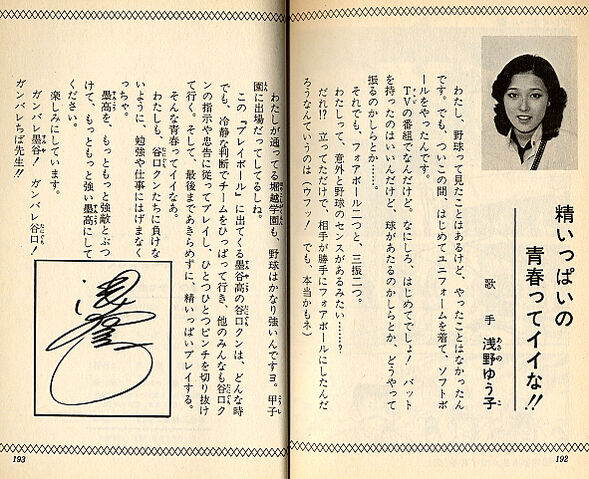 精いっぱいの
青春ってイイな!!
歌手 浅野ゆう子
あさの こ
わたし、野球って見たことはあるけど、やったことはなかったん
です。でも、ついこの間、はじめてユニフォームを着て、ソフトボ
ールをやったんです。
TVの番組でなんだけど。なにしろ、はじめてでしょ!バット
を持ったのはいいんだけど、球があたるのかしらとか、どうやって
振るのかしらとか……。
それでも、フォアボール二つと、三振二つ。
わたしって、意外と野球のセンスがあるみたい……?
だれ!?立ってただけで、相手が勝手にフォアボールにしたんだ
ろうなんていうのは(ウフッ!でも、本当かもネ)
192
わたしが通ってる堀越学園も、野球はかなり強いんですヨ。甲子
園に出場だってしてるしね。
この『プレイボール』に出てくる墨谷高の谷口クンは、どんな時
でも、冷静な判断でチームをひっぱって行き、他のみんなも谷口ク
ンの指示や忠告に従ってプレイし、ひとつひとつピンチを切り抜け
て行く。そして、最後まであきらめずに、精いっぱいプレイする。
そんな青春ってイイなあ。
わたしも、谷口クンたちに負けな
いように、勉強や仕事にはげまなく
っちゃ。
墨高も、もっともっと強敵とぶつ
けて、もっともっと強い墨高にして
ください。
楽しみにしています。
ガンバレ墨谷!ガンバレ谷口!
ガンバレちば先生!!
193